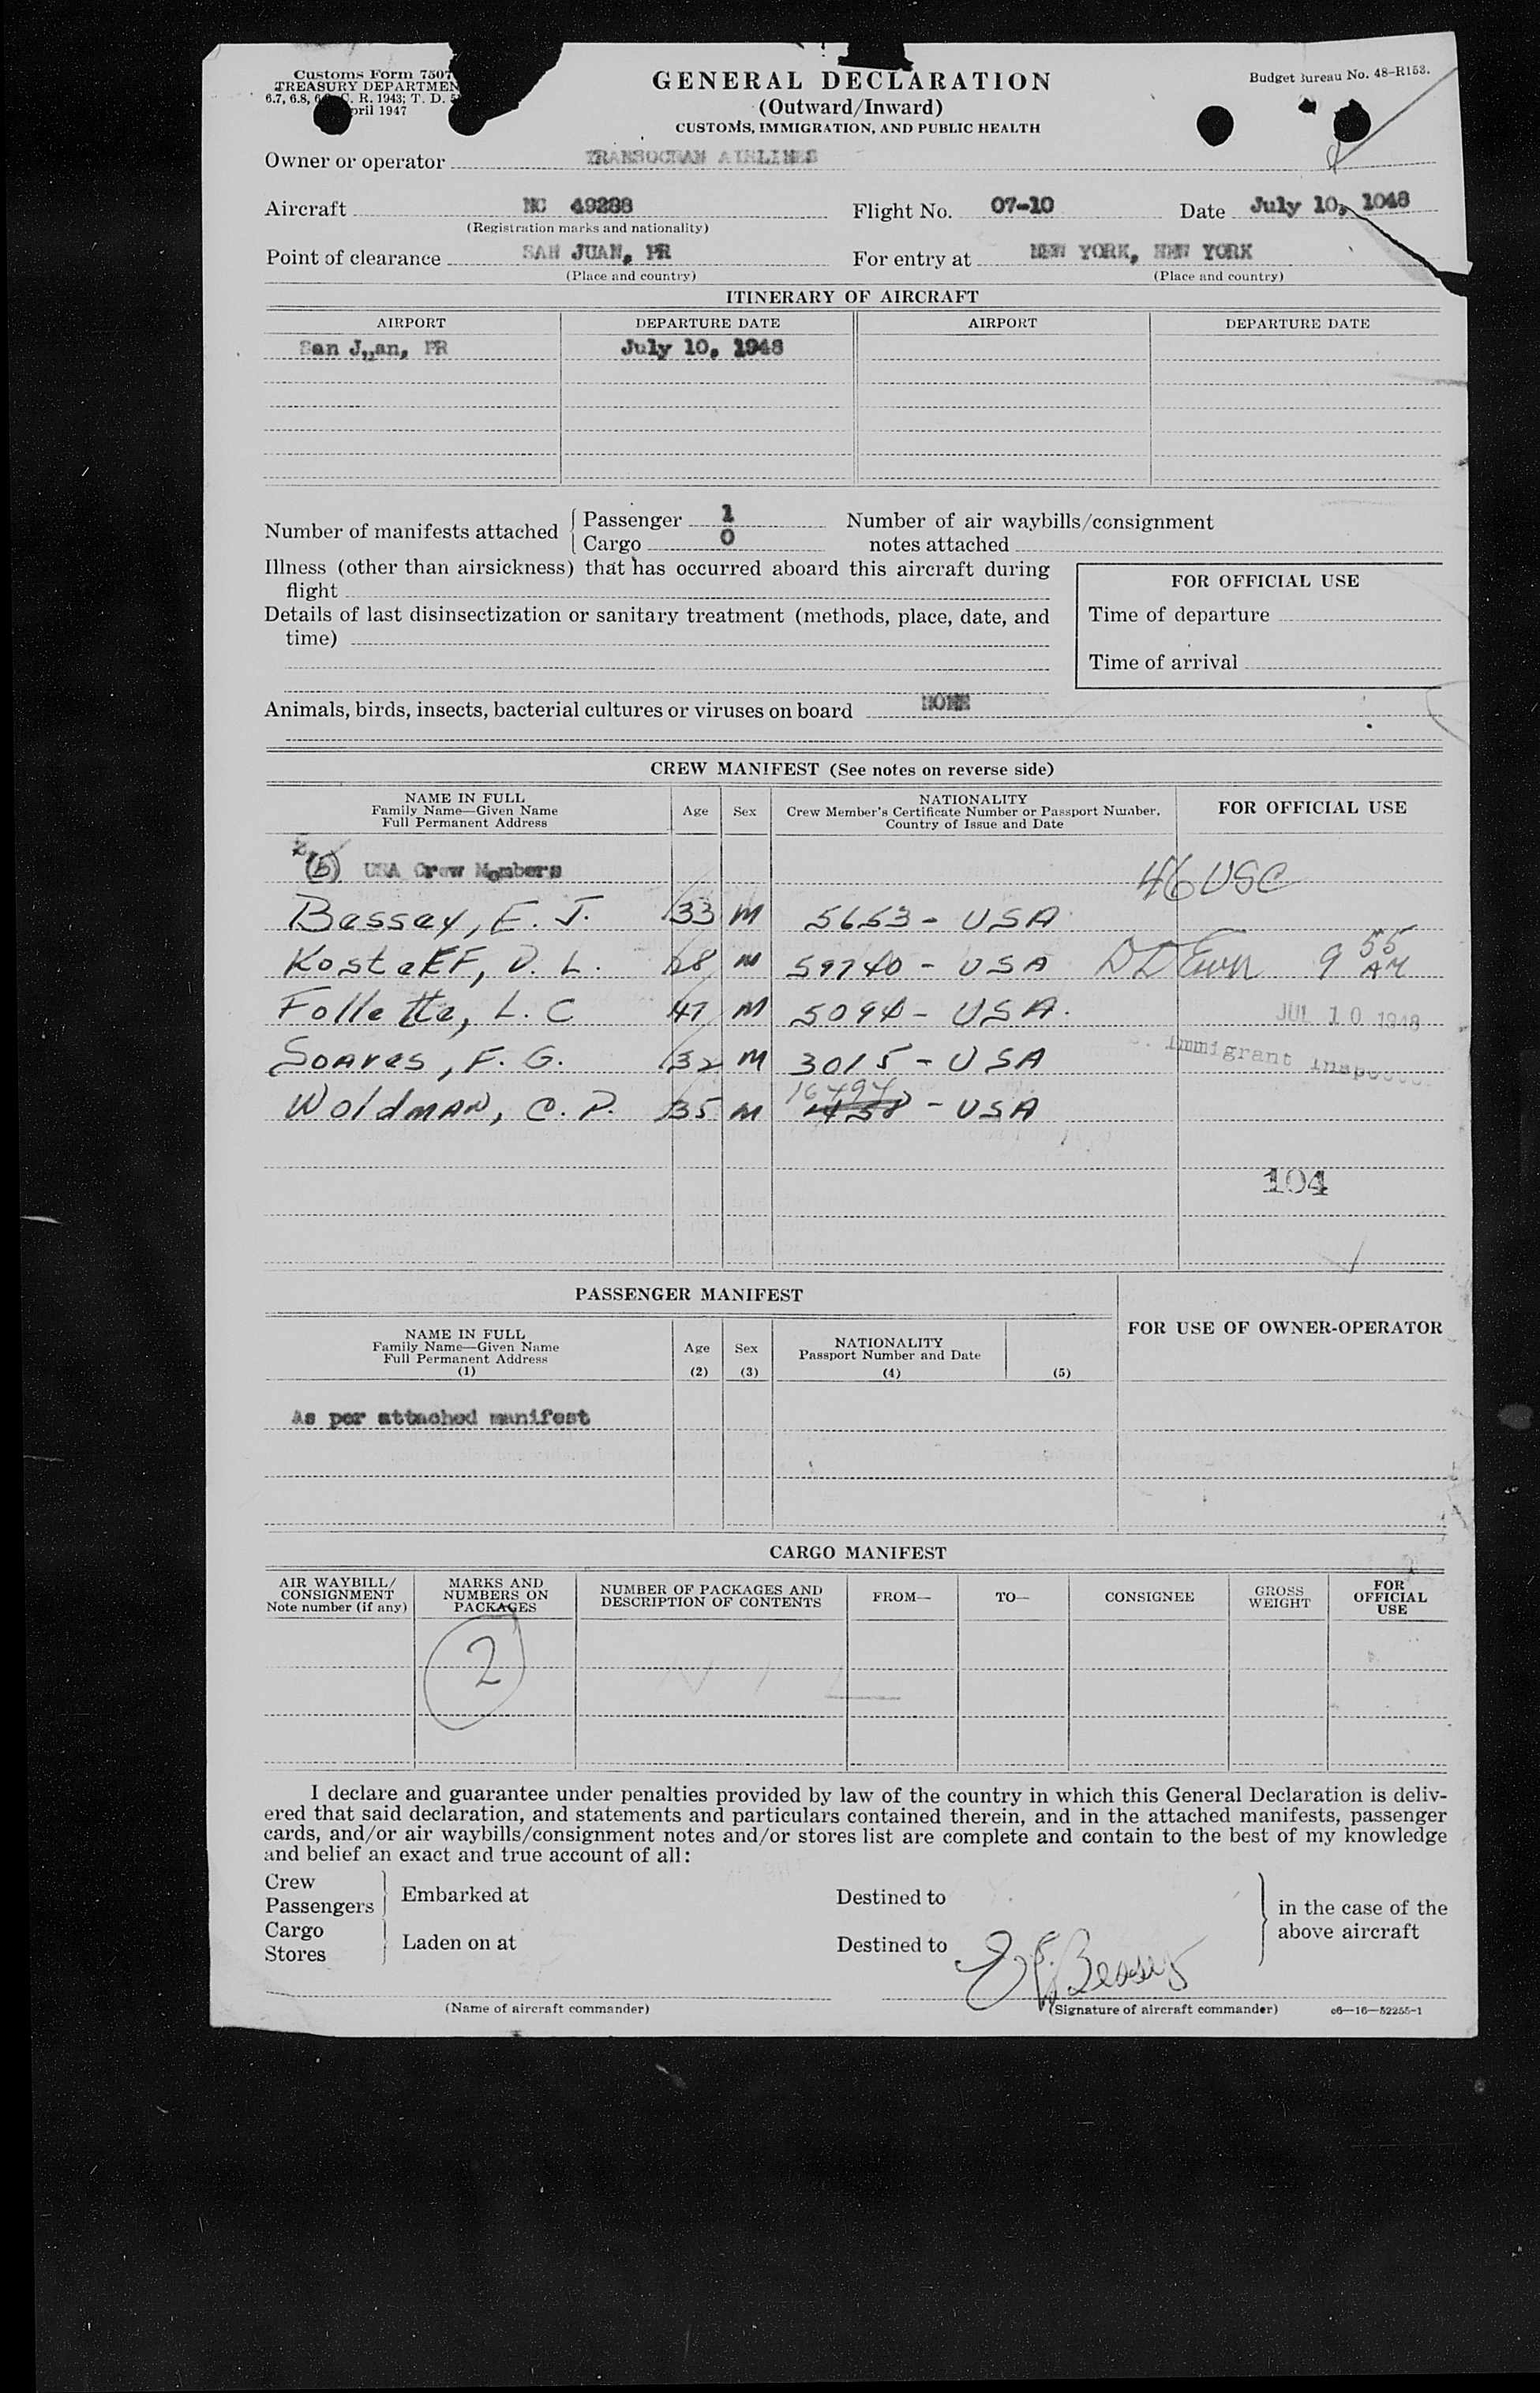 Customs Form 7507
TREASURY DEPARTMEN
6.7, 6.8, C. R. 1943; T. D.
pril 1947
GENERAL DECLARATION
(Outward/Inward)
CUSTOMS, IMMIGRATION, AND PUBLIC HEALTH
Budget Bureau No. 48-R153.
Owner or operator TRANSOCEAN AIRLINES
Aircraft NC 49288 Flight No. 07-10 Date July 10, 1048
(Registration marks and nationality)
Point of clearance SAN JUAN, PR For entry at NEW YORK, NEW YORK
(Place and country) (Place and country)
ITINERARY OF AIRCRAFT
AIRPORT DEPARTURE DATE AIRPORT DEPARTURE DATE
San Juan, PR July 10, 1948
Number of manifests attached Passenger 1 Number of air waybills/consignment
Cargo 0 notes attached
Illness (other than airsickness) that has occurred aboard this aircraft during
flight
FOR OFFICIAL USE
Details of last disinsectization or sanitary treatment (methods, place, date, and
time)
Time of departure
Time of arrival
Animals, birds, insects, bacterial cultures or viruses on board NONE
CREW MANIFEST (See notes on reverse side)
NAME IN FULL
Family Name—Given Name
Full Permanent Address
Age Sex
NATIONALITY
Crew Member's Certificate Number or Passport Number,
Country of Issue and Date
FOR OFFICIAL USE
(5) USA Crew Members
46 USC
Bessey, E. J. 33 M 5653 - USA
Kosteff, D. L. 28 M 59740 - USA 9 55 AM
Follette, L. C 47 M 5094 - USA.
JUL 10 1948
Soares, F. G. 32 M 3015 - USA
Immigrant Inspector
Woldman, C. P. 35 M 16494 - USA
104
PASSENGER MANIFEST
NAME IN FULL
Family Name—Given Name
Full Permanent Address
(1)
Age
(2)
Sex
(3)
NATIONALITY
Passport Number and Date
(4)
(5)
FOR USE OF OWNER-OPERATOR
As per attached manifest
CARGO MANIFEST
AIR WAYBILL/
CONSIGNMENT
Note number (if any)
MARKS AND
NUMBERS ON
PACKAGES
NUMBER OF PACKAGES AND
DESCRIPTION OF CONTENTS
FROM— TO— CONSIGNEE
GROSS
WEIGHT
FOR
OFFICIAL
USE
2
N I L
I declare and guarantee under penalties provided by law of the country in which this General Declaration is deliv-
ered that said declaration, and statements and particulars contained therein, and in the attached manifests, passenger
cards, and/or air waybills/consignment notes and/or stores list are complete and contain to the best of my knowledge
and belief an exact and true account of all:
Crew
Passengers
Embarked at Destined to
Cargo
Stores
Laden on at Destined to
in the case of the
above aircraft
E J Bessey
(Name of aircraft commander) (Signature of aircraft commander) c6—16—52255-1